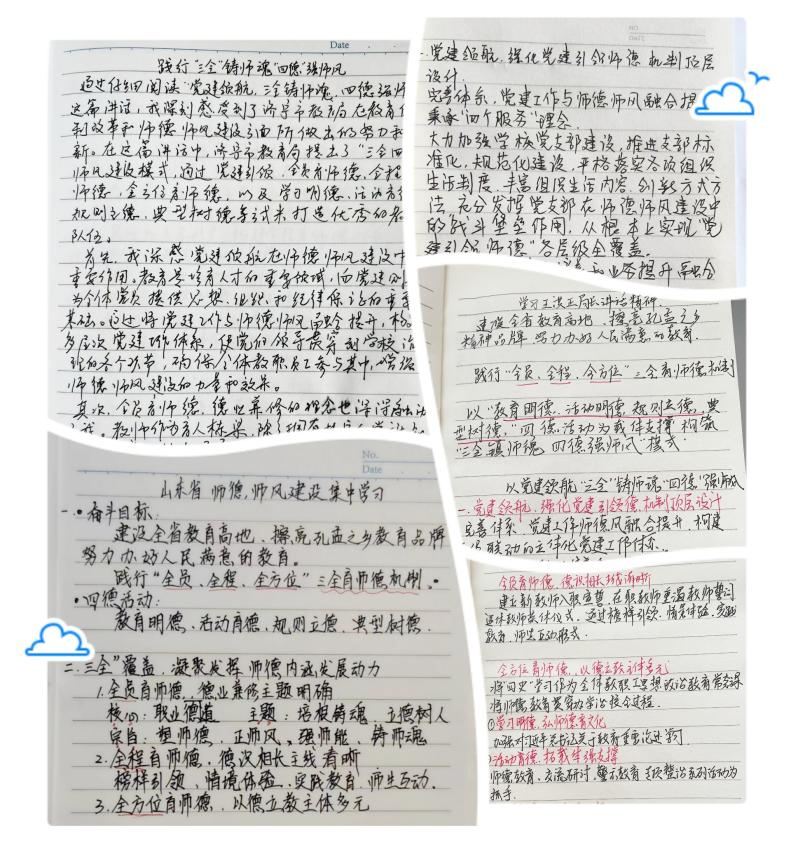 Date
践行"三全"铸师魂"四德"强师风
通过仔细阅读"党建领航,三全铸师魂,四德强师
这篇讲话,我深刻感受到了济宁市教育局在教育
制改革和师德师风建设方面所做出的努力和
新。在这篇讲话中,济宁市教育局提出了"三全四
师风建设模式,通过党建引领,全员育师德,全程
师德,全方位育师德,以及学习明德,活动育
规则立德,典型树德等试来打造优秀的
队伍。
首先,我深感党建领航在师德师风建设中
重要作用。教育是培育人才的重要领域,而党建则
为个体党员提供思想、组织和纪律保证的重要
基础。通过将党建工作与师德师风融合提升,构
多层次党建工作体系,使党的领导贯穿到学校治
理的各个环节,确保全体教职员工参与其中,增强
师德师风建设的力量和效果。
其次,全员育师德,德业兼修的理念也深深
党建领航,强化党建引领师德机制顶层
设计.
完善体系,党建工作与师德师风融合提
秉承"四个服务"理念.
大力加强学校党支部建设,推进支部标
准化,规范化建设,严格落实各项组织
生活制度,丰富组织生活内容,创新方式方
法,充分发挥党支部在师德师风建设中
的战斗堡垒作用,从根本上实现"党
建引领师德"各层级全覆盖。
业务提升融合
学习王洪正局长讲话精神.
建设全省教育高地,擦亮孔孟之乡
精神品牌,努力办好人民满意的教育.
践行"全员、全程、全方位"三全育师德机制
以"教育明德,活动明德,规则立德,典
型树德,"四德活动为载体支撑,构筑
"三全铸师魂,四德强师风"模式
以党建领航"三全"铸师魂"四德"强师风
一.党建领航,强化党建引领德机制顶层设计
完善体系,党建工作师德风融合提升,构建
联动的立体化党建工作体系.
No.
Date
山东省师德,师风建设集中学习
一.•奋斗目标:
建设全省教育高地、擦亮孔孟之乡教育品牌
努力办好人民满意的教育。
践行"全员、全程、全方位"三全育师德机制。
•四德活动:
教育明德、活动育德、规则立德、典型树德.
二.三全"覆盖,凝聚发挥师德内涵发展动力
1.全员育师德,德业兼修主题明确
核心:职业德道 主题:培根铸魂、立德树人
宗旨:塑师德、正师风、强师能、铸师魂
2.全程育师德,德识相长主线清晰
榜样引领、情境体验、实践教育、师生互动.
3.全方位育师德,以德立教主体多元
全员育师德、德识相长线清晰
建立新教师入职宣誓,在职教师重温教师誓词
退休教师荣休仪式,通过榜样引领、情境体验、实践
教育,师生互动形式.
全方位育师德,以德立教主体多元
将"四史"学习作为全体教职工思想政治教育常态课
将师德教育贯穿办学治校全过程.
①学习明德、弘师德育文化
加强对习近平总书记关于教育重要论述学习
活动育德、拓载体强支撑
师德教育、交流研讨、警示教育、专项整治系列活动为
抓手.